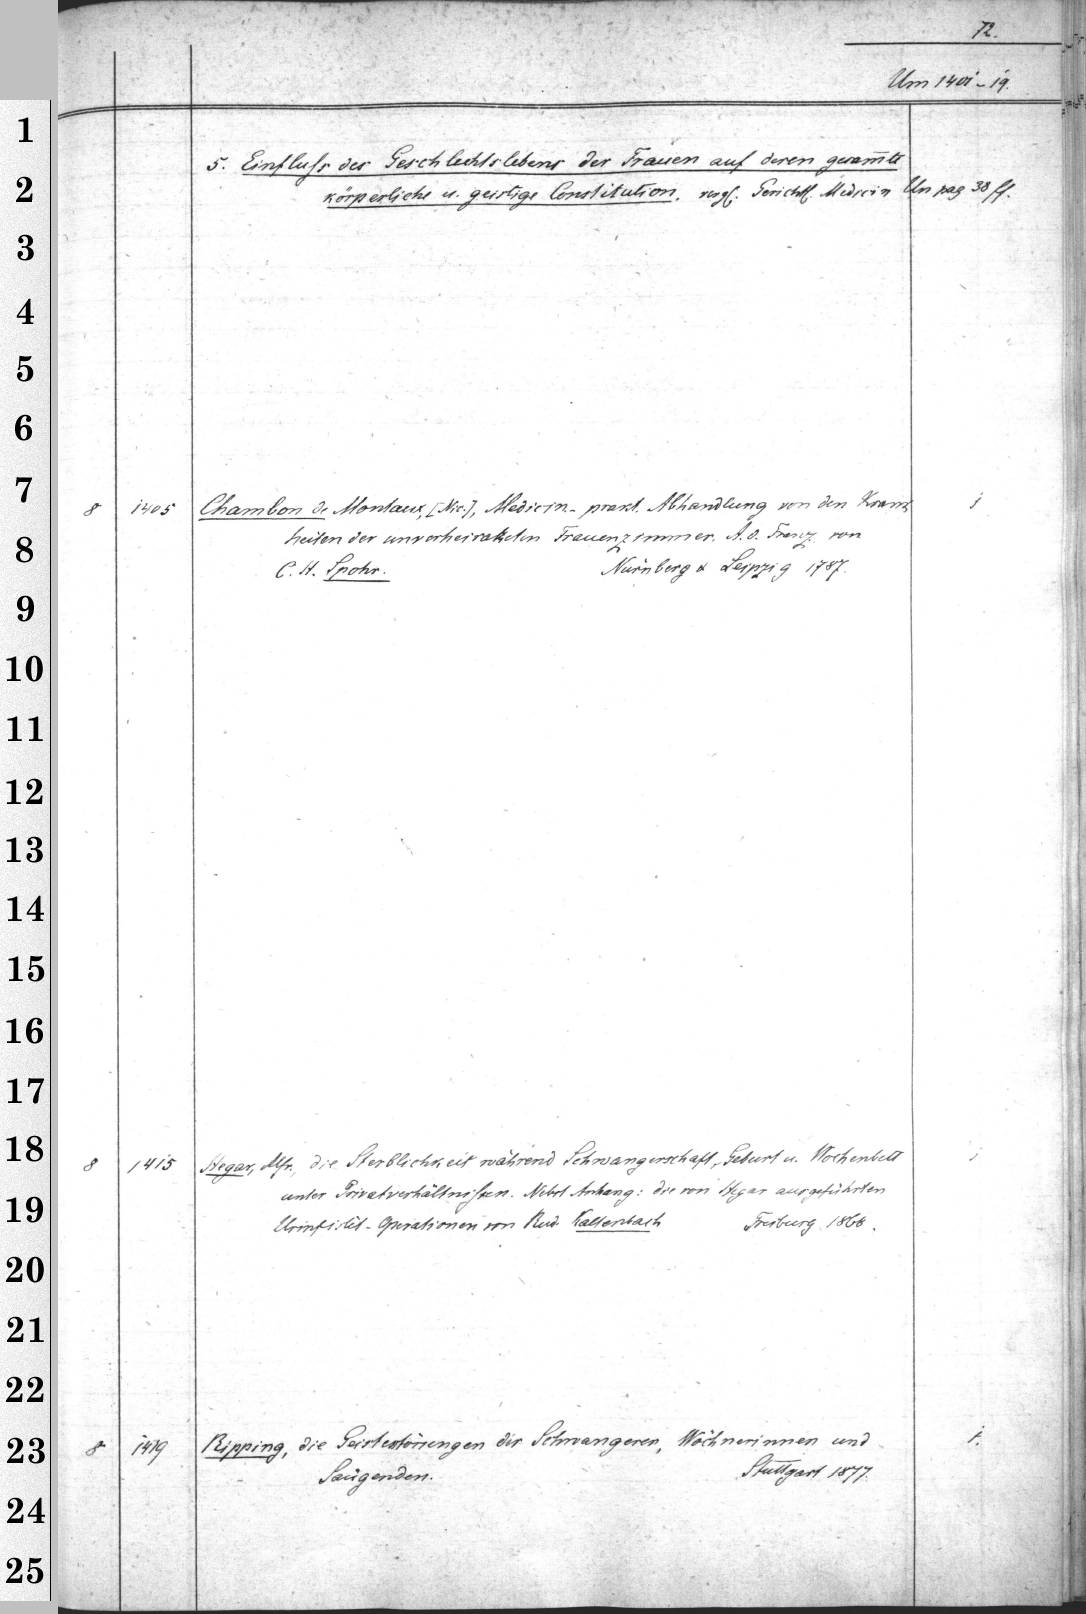 72.
Um 1401-19.
5. Einfluss des Geschlechtslebens der Frauen auf deren gesammte
körperliche u. geistige Constitution. vergl. Gerichtl. Medicin Un pag 38 ff.
8 1405 Chambon de Montaux, [Nic.], Medicin.-prakt. Abhandlung von den Krank 1
heiten der unverheirateten Frauenzimmer. A. d. Franz. von
C. H. Spohr. Nürnberg & Leipzig 1787.
8 1415 Hegar, Alfr., die Sterblichkeit während Schwangerschaft, Geburt u. Wochenbett 1
unter Privatverhältnissen. Nebst Anhang: die von Hegar ausgeführten
Urinfistel-Operationen von Rud. Kaltenbach Freiburg 1868.
8 1419 Ripping, die Geistesstörungen der Schwangeren, Wöchnerinnen und 1.
Säugenden. Stuttgart 1877.
1
2
3
4
5
6
7
8
9
10
11
12
13
14
15
16
17
18
19
20
21
22
23
24
25